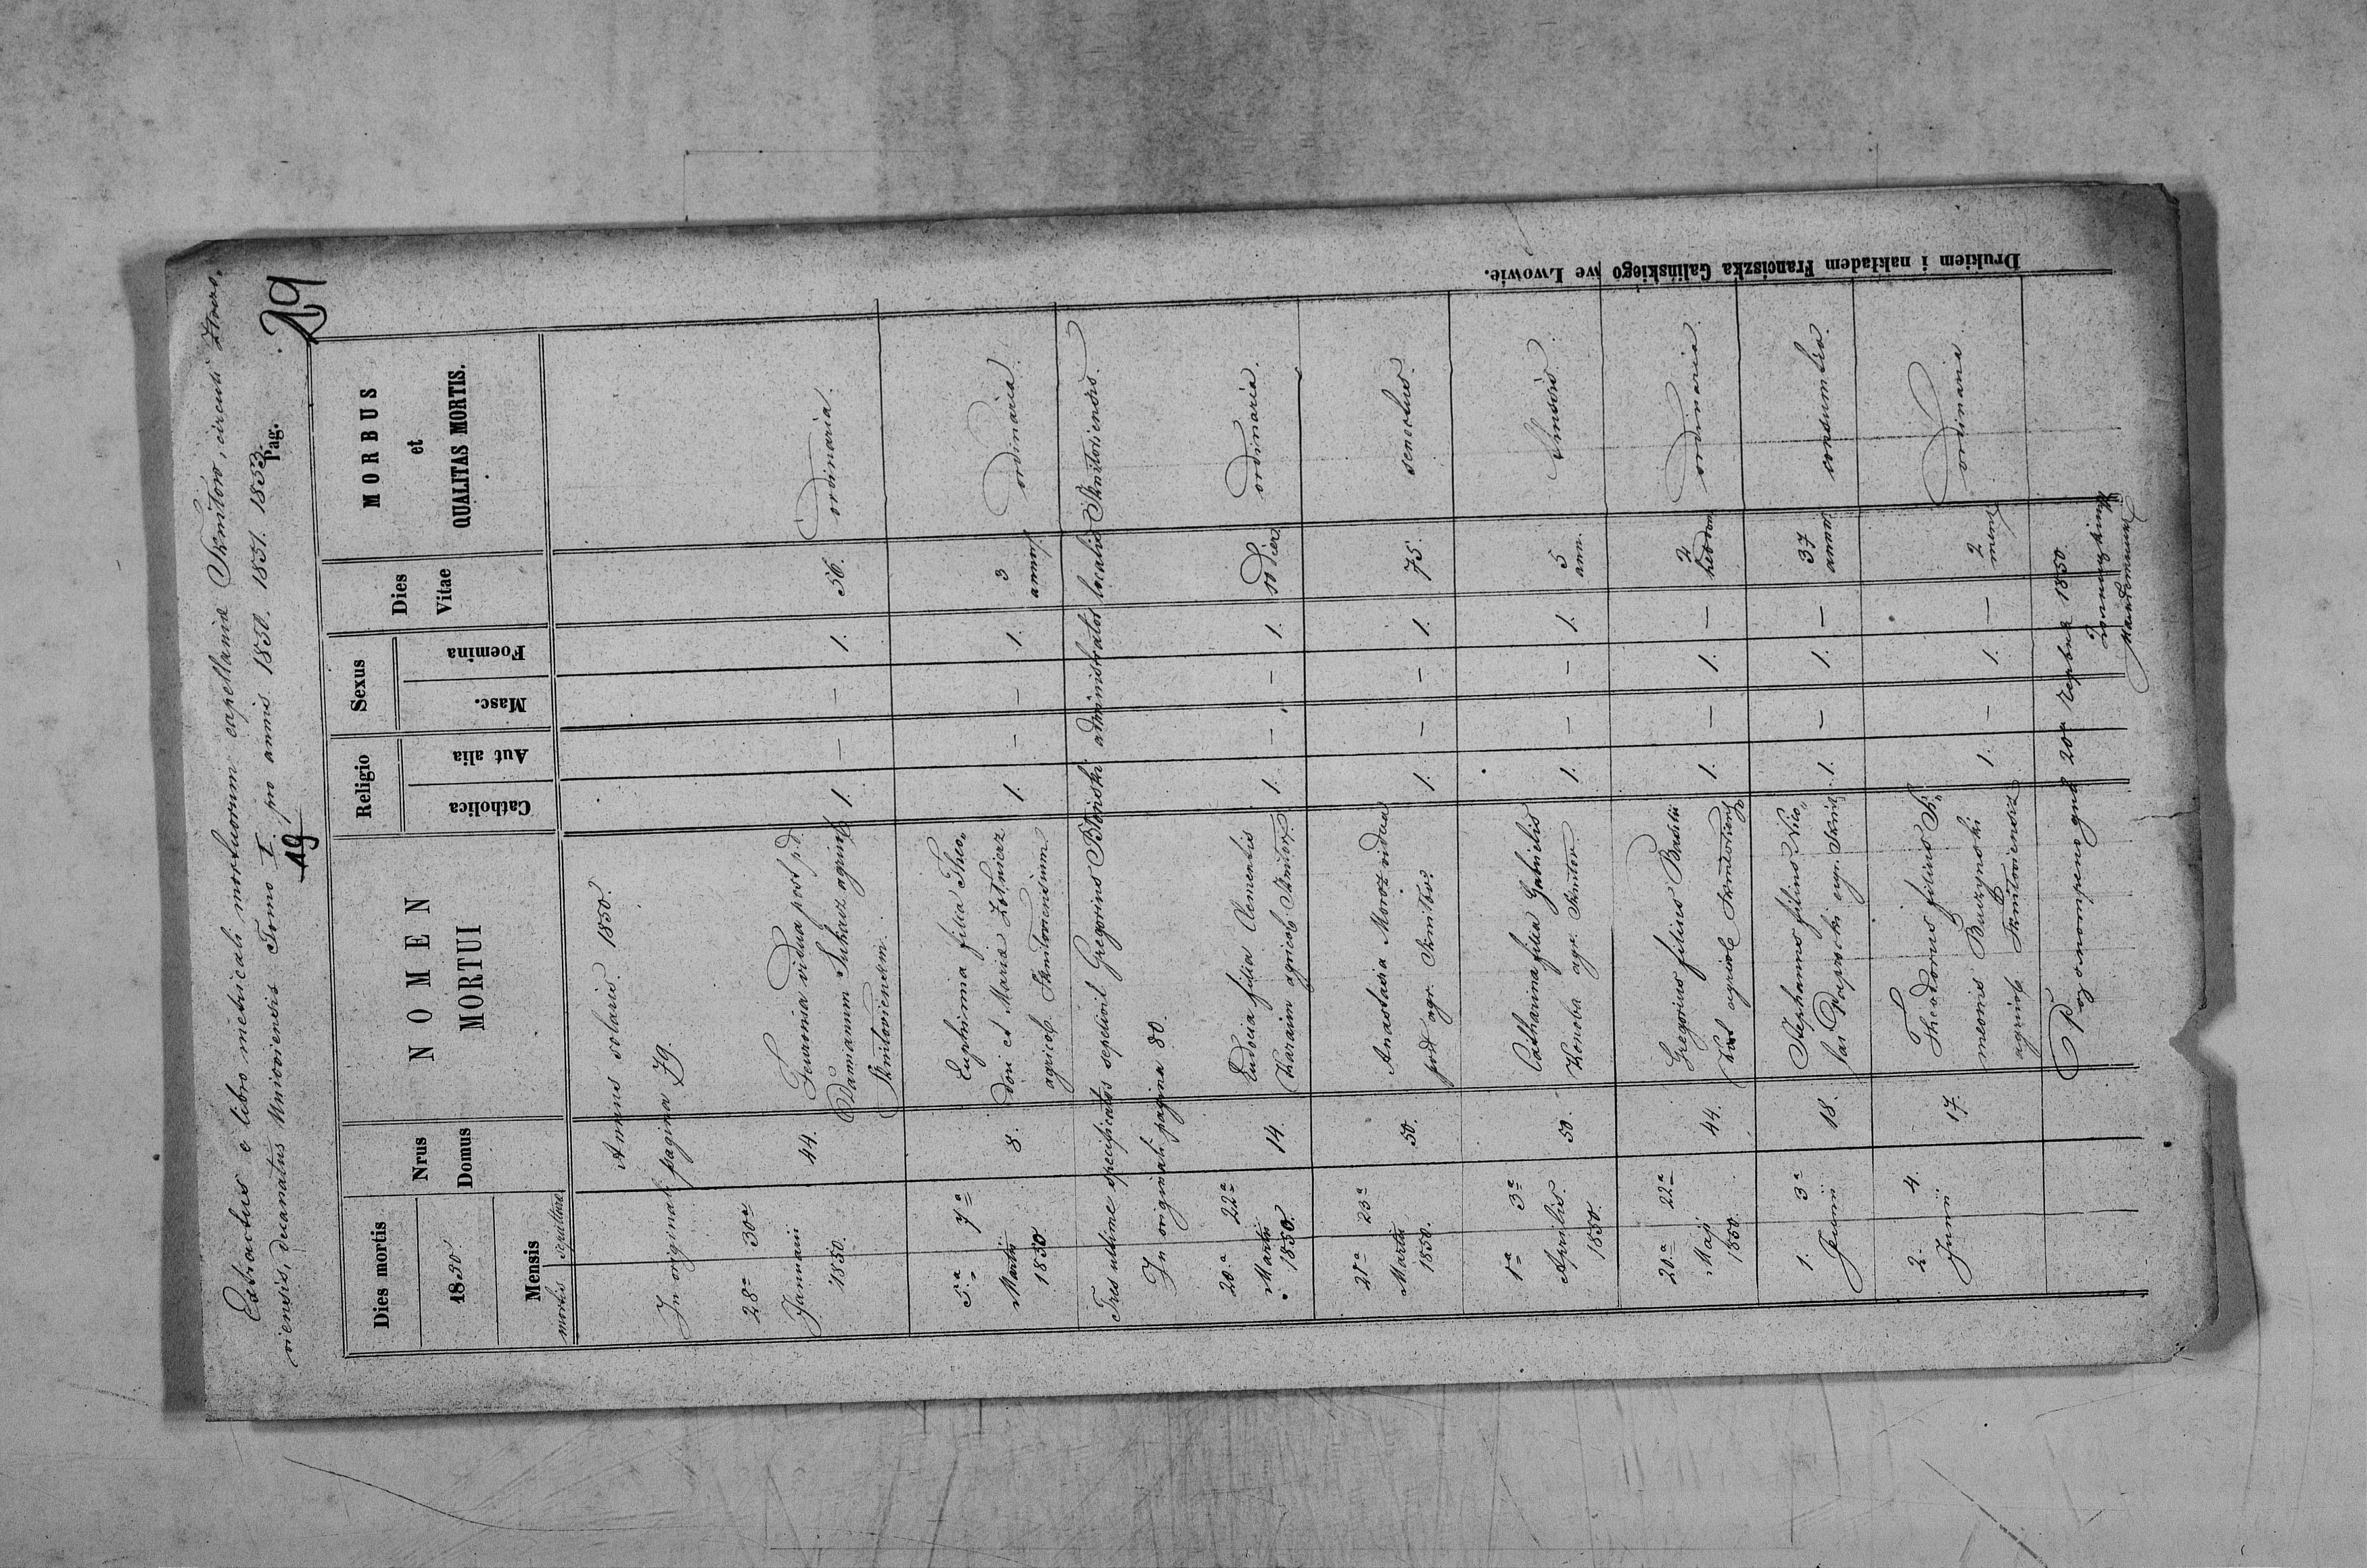 Extractus e libro metricali mortuorum capellaniæ Sknitow, circuli Złocz.
oviensis, decanatus Uniowiensis Tomo I. pro annis 1850. 1851. 1853.
19
Pag. 29
Dies mortis
1850
Mensis
mortis sepulturæ
Nrus
Domus
NOMEN
MORTUI
Religio
Catholica
Aut alia
Sexus
Masc.
Foemina
Dies
Vitae
MORBUS
et
QUALITAS MORTIS.
Annus solaris 1850.
In originali pagina 79.
28a 30a
Januarii
1850.
44.
Fevronia vidua post p. d.
Damianum Suhacz agricol.
Sknitoviensem.
1. — — 1. 56. ordinaria.
5a 7a
Martii
1850
8.
Euphrinna filia Theo„
dori et Mariæ Zołnierz
agricol. Sknitoviensium
1. — — 1. 3
annor.
ordinaria.
Tres ultime specificatos sepelivit Gregorius Błoński administrator localis Sknitoviensis.
In originali pagina 80.
20a 22a
Martii
1850.
14.
Eudocia filia Clementis
Karaim agricol. Sknitov.
1. — — 1. 10 dier.
ordinaria.
21a 23a
Martii
1850.
50.
Anastasia Moroz vidua
post agr. Sknitov.
1. — — 1. 75. senectus.
1a 3a
Aprilis
1850.
50.
Catharina filia Gabrielis
Konoba agr. Sknitov
1. — — 1. 5
ann.
tussis.
20a 22a
Maji
1850.
44.
Gregorius filius Basilii
agricol. Sknitoviens.
1. — 1. — 2
hebdom
ordinaria.
1. 3a
Junii
18.
Stephanus filius Nico„
lai Paprocki agr. Sknit.
1. — 1. — 37
annor.
consumtio.
2. 4.
Junii
17.
Theodorus filius Si„
meonis Buczynski
agricol. Sknitoviensis
1. — 1. — 2
mens.
ordinaria.
20a 1850.
Drukiem i nakładem Franciszka Galińskiego we Lwowie.